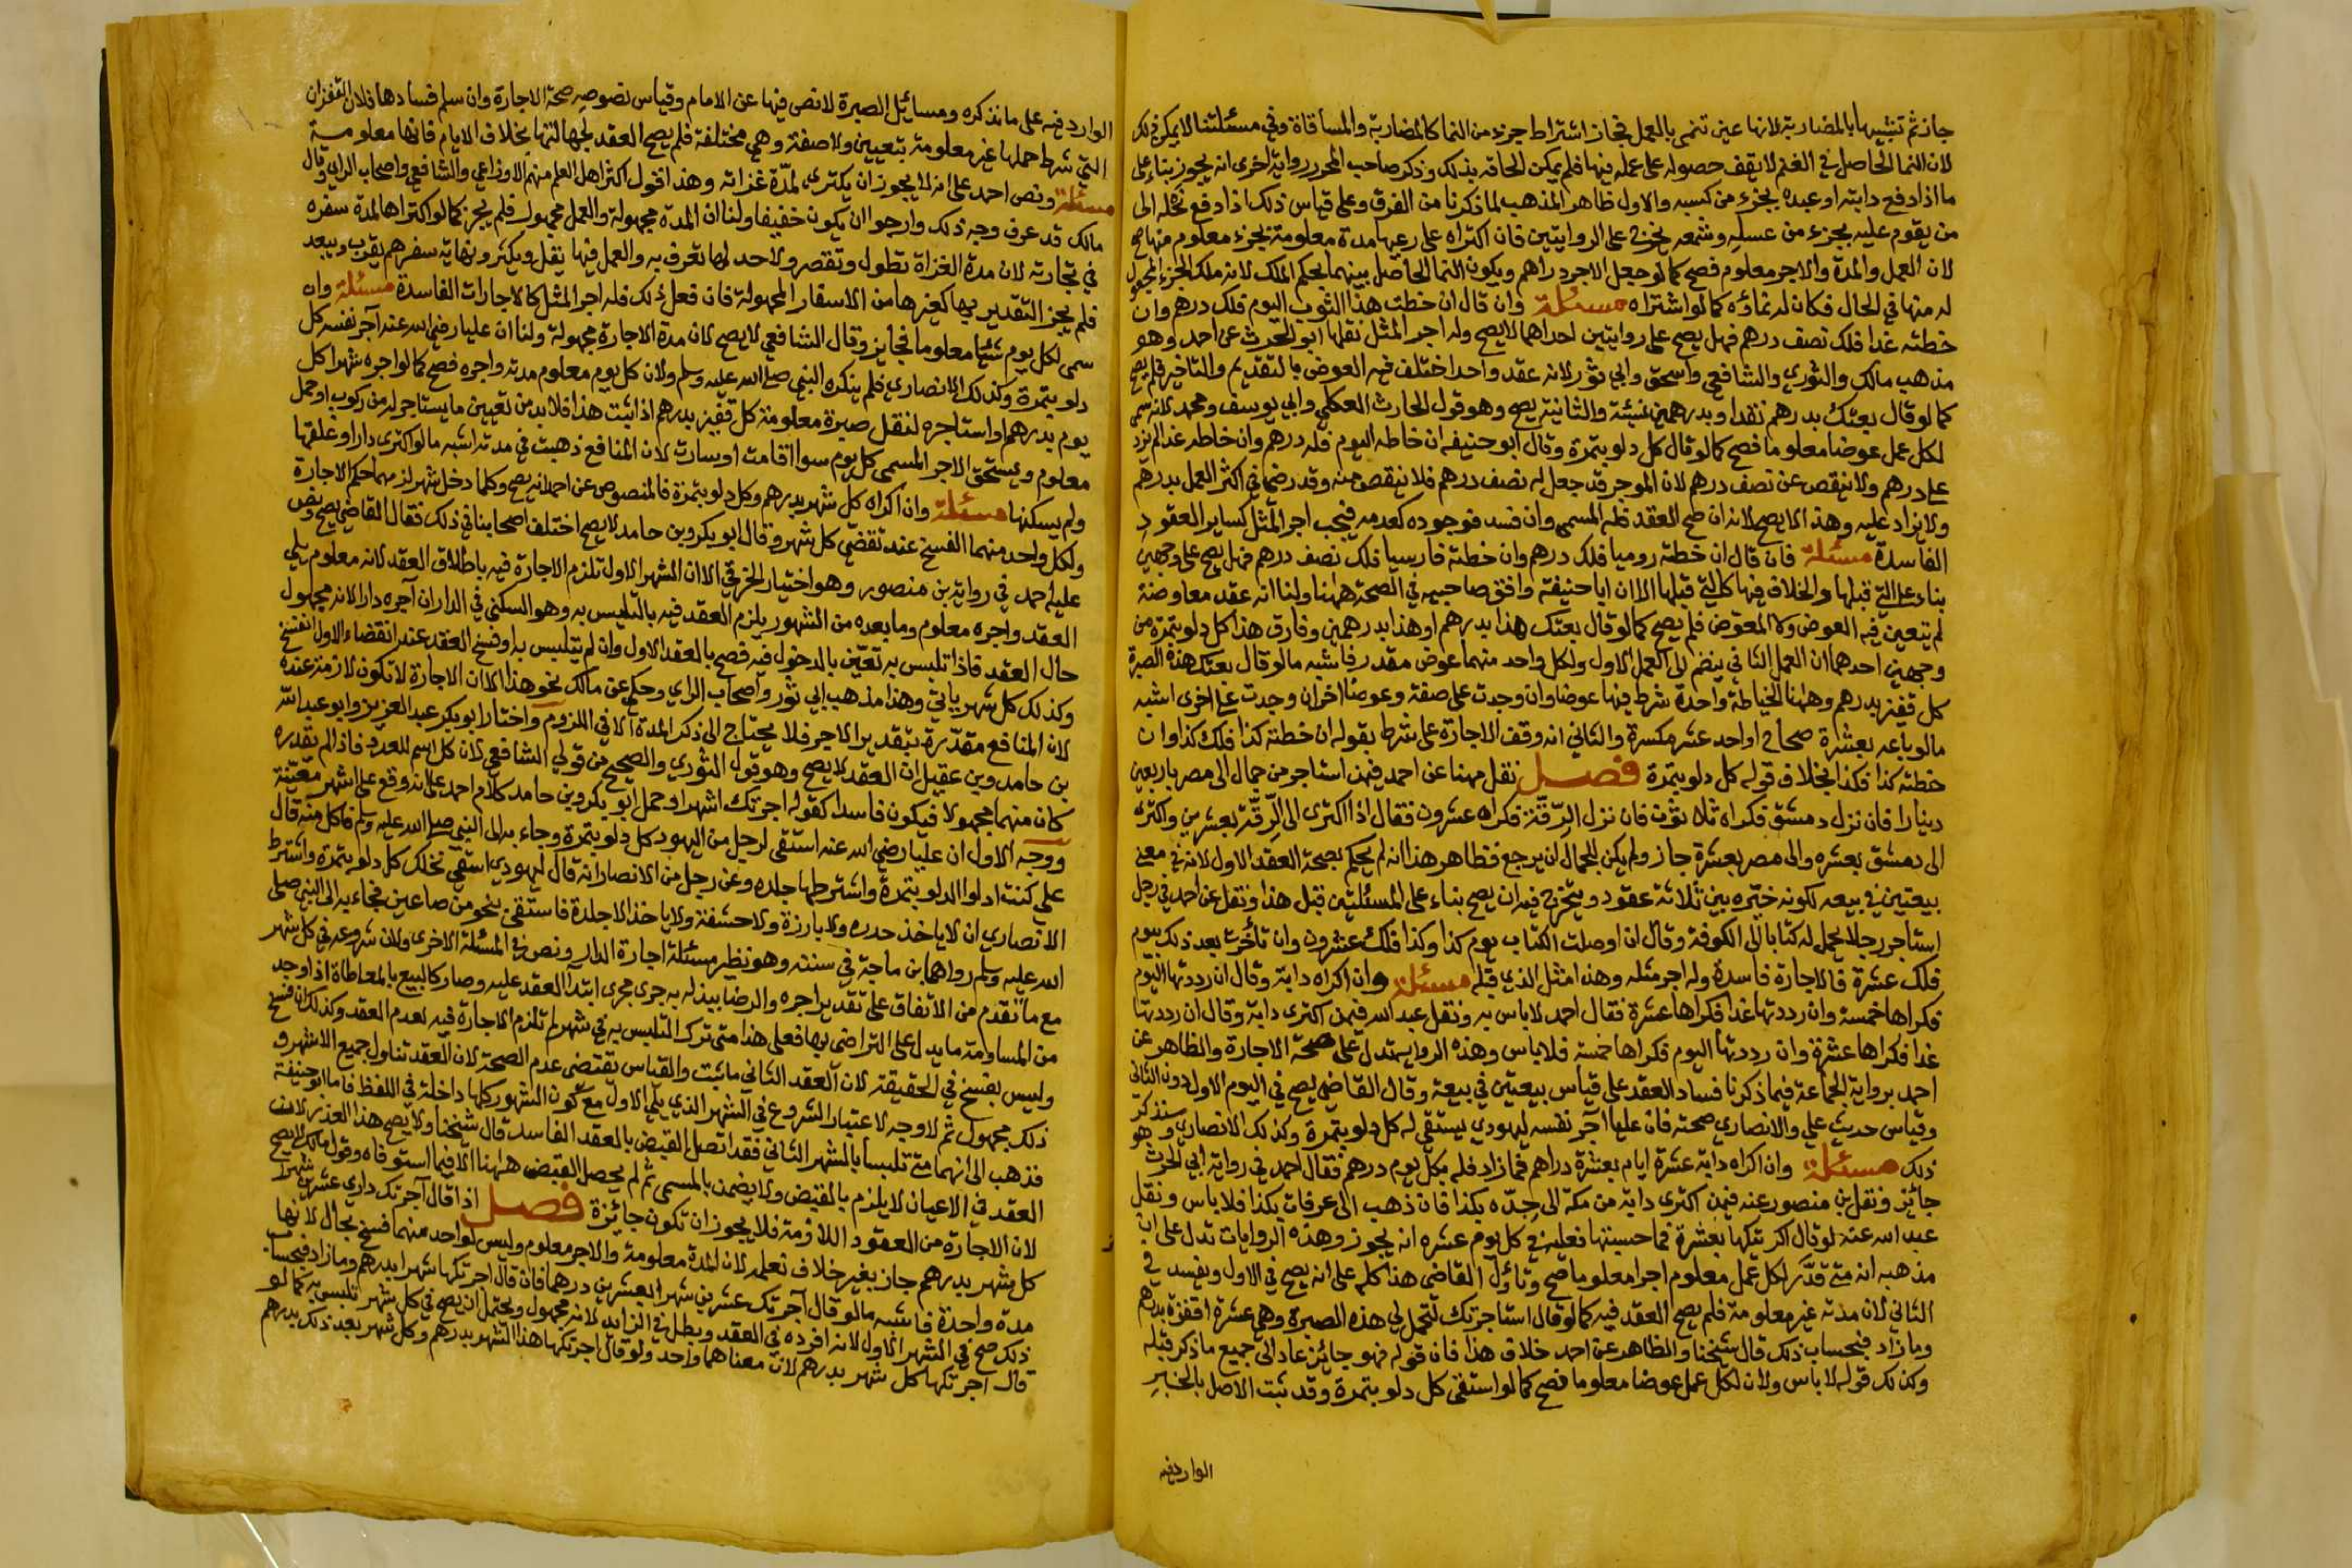 جاز ثم تشبيهها بالمضاربة لانها عين تنمى بالعمل فجاز اشتراط جزء من النما كالمضاربة والمساقاة وفي مسئلتنا لا يمكن ذلك
لان النما الحاصل في الغنم لا يقف حصوله على عمله فيها فلم يمكن الحاقه بذلك وذكر صاحب المحرر رواية اخرى انه يجوز بناء على
ما اذا دفع دابته او عبده بجزء من كسبه والاول ظاهر المذهب لما ذكرنا من الفرق وعلى قياس ذلك اذا دفع نحله الى
من يقوم عليه بجزء من عسله وشمعه يخرج على الروايتين فان اكتراه على رعيها مدة معلومة بجزء معلوم منها صح
لان العمل والمدة والاجر معلوم فصح كما لو جعل الاجر دراهم ويكون النما الحاصل بينهما بحكم الملك لانه ملك الجزء المجعول
له منها في الحال فكان له نماؤه كما لو اشتراه مسئلة وان قال ان خطت هذا الثوب اليوم فلك درهم وان
خطته غدا فلك نصف درهم فهل يصح على روايتين احداهما لا يصح وله اجر المثل نقلها ابو الحرث عن احمد وهو
مذهب مالك والثوري والشافعي واسحق وابي ثور لانه عقد واحد اختلف فيه العوض بالتقديم والتاخير فلم يصح
كما لو قال بعتك بدرهم نقدا وبدرهمين نسئة والثانية يصح وهو قول الحارث العكلي وابي يوسف ومحمد لانه سمى
لكل عمل عوضا معلوما فصح كما لو قال كل دلو بتمرة وقال ابو حنيفه ان خاطه اليوم فله درهم وان خاطه غدا لم يزد
على درهم ولا ينقص عن نصف درهم لان الموجر قد جعل له نصف درهم فلا ينقص منه وقد رضي في اكثر العمل بدرهم
ولا يزاد عليه وهذا لا يصح لانه ان صح العقد فله المسمى وان فسد فوجوده كعدمه فيجب اجر المثل كساير العقود
الفاسدة مسئلة فان قال ان خطته روميا فلك درهم وان خطته فارسيا فلك نصف درهم فهل يصح على وجهين
بناء على التي قبلها والخلاف فيها كالتي قبلها الا ان ابا حنيفة وافق صاحبيه في الصحة ههنا ولنا انه عقد معاوضة
لم يتعين فيه العوض ولا المعوض فلم يصح كما لو قال بعتك هذا بدرهم او هذا بدرهمين وفارق هذا كل دلو بتمرة من
وجهين احدهما ان العمل الثاني ينضم الى العمل الاول ولكل واحد منهما عوض مقدر فاشبه ما لو قال بعتك هذه الصبرة
كل قفيز بدرهم وههنا الخياطة واحدة شرط فيها عوضا وان وجدت على صفة وعوضا اخر ان وجدت على اخرى اشبه
ما لو باعه بعشرة صحاح او احد عشر مكسرة والثاني انه وقف الاجارة على شرط بقوله ان خطته كذا فلك كذا وان
خطته كذا فكذا بخلاف قوله كل دلو بتمرة فصل نقل مهنا عن احمد فيمن استاجر من جمال الى مصر باربعين
دينارا فان نزل دمشق فكراه ثلاثون فان نزل الرقة فكراه عشرون فقال اذا اكترى الى الرقة بعشرين واكترى
الى دمشق بعشره والى مصر بعشرة جاز ولم يكن للجمال ان يرجع فظاهر هذا انه لم يحكم بصحة العقد الاول لانه في معنى
بيعتين في بيعه لكونه خيره بين ثلاثة عقود ويتخرج فيه ان يصح بناء على المسئلتين قبل هذا ونقل عن احمد في رجل
استاجر رجلا يحمل له كتابا الى الكوفة وقال ان اوصلت الكتاب يوم كذا وكذا فلك عشرون وان تأخرت بعد ذلك بيوم
فلك عشرة فالاجارة فاسدة وله اجر مثله وهذا مثل الذي قبله مسئلة وان اكراه دابة وقال ان رددتها اليوم
فكراها خمسة وان رددتها غدا فكراها عشرة فقال احمد لا باس به ونقل عبد الله فيمن اكترى دابة وقال ان رددتها
غدا فكراها عشرة وان رددتها اليوم فكراها خمسة فلا باس وهذه الرواية تدل على صحة الاجارة والظاهر عن
احمد برواية الجماعة فيما ذكرنا فساد العقد على قياس بيعتين في بيعة وقال القاضي يصح في اليوم الاول دون الثاني
وقياس حديث علي والانصاري صحته فان عليا آجر نفسه ليهودي يستقي له كل دلو بتمرة وكذلك الانصاري وسنذكر
ذلك مسئلة وان اكراه دابة عشرة ايام بعشرة دراهم فما زاد فله بكل يوم درهم فقال احمد في رواية ابي الحرث هو
جائز ونقل بن منصور عنه فيمن اكترى دابة من مكة الى جدة بكذا فان ذهب الى عرفات بكذا فلا باس ونقل
عبد الله عنه لو قال اكريتكها بعشرة فما حبستها فعليه في كل يوم عشره انه يجوز وهذه الروايات تدل على ان
مذهبه انه متى قدر لكل عمل معلوم اجرا معلوما صح وتأول القاضي هذا كله على انه يصح في الاول ويفسد في
الثاني لان مدته غير معلومة فلم يصح العقد فيه كما لو قال استاجرتك لتحمل لي هذه الصبرة وهي عشرة اقفزة بدرهم
وما زاد فبحساب ذلك قال شيخنا والظاهر عن احمد خلاف هذا فان قوله فهو جائز عاد الى جميع ما ذكر قبله
وكذلك قوله لا باس ولان لكل عمل عوضا معلوما فصح كما لو استقى كل دلو بتمرة وقد ثبت الاصل بالخبر
الوارد فيه
الوارد فيه على ما نذكره ومسائل الصبرة لا نص فيها عن الامام وقياس نصوصه صحة الاجارة وان سلم فسادها فلان القفزان
التي شرط حملها غير معلومة بتعيين ولا صفة وهي مختلفة فلم يصح العقد لجهالتها بخلاف الايام فانها معلومة
مسئلة ونص احمد على انه لا يجوز ان يكتري لمدة غزاته وهذا قول اكثر اهل العلم منهم الاوزاعي والشافعي واصحاب الراي وقال
مالك قد عرف وجه ذلك وارجوا ان يكون خفيفا ولنا ان المدة مجهولة والعمل مجهول فلم يجز كما لو اكتراها لمدة سفره
في تجارته لان مدة الغزاة تطول وتقصر ولا حد لها تعرف به والعمل فيها يقل ويكثر ونهاية سفرهم يقرب ويبعد
فلم يجز التقدير بها كغيرها من الاسفار المجهولة فان فعل ذلك فله اجر المثل كالاجارات الفاسدة مسئلة وان
سمى لكل يوم شيئا معلوما فجايز وقال الشافعي لا يصح لان مدة الاجارة مجهولة ولنا ان عليا رضي الله عنه آجر نفسه كل
دلو بتمرة وكذلك الانصاري فلم ينكره النبي صلى الله عليه وسلم ولان كل يوم معلوم مدته واجره فصح كما لو اجره شهرا كل
يوم بدرهم او استاجره لنقل صبرة معلومة كل قفيز بدرهم اذا ثبت هذا فلا بد من تعيين ما يستاجر له من ركوب او حمل
معلوم ويستحق الاجر المسمى كل يوم سوا اقامت او سارت لان المنافع ذهبت في مدته اشبه ما لو اكترى دارا وغلقها
ولم يسكنها مسئلة وان اكراه كل شهر بدرهم وكل دلو بتمرة فالمنصوص عن احمد انه يصح وكلما دخل شهر لزمهما حكم الاجارة
ولكل واحد منهما الفسخ عند تقضي كل شهر وقال ابو بكر وبن حامد لا يصح اختلف اصحابنا في ذلك فقال القاضي يصح ونص
عليه احمد في رواية بن منصور وهو اختيار الخرقي الا ان الشهر الاول تلزم الاجارة فيه باطلاق العقد لانه معلوم يلي
العقد واجره معلوم وما بعده من الشهور يلزم العقد فيه بالتلبس به وهو السكنى في الدار ان آجره دارا لانه مجهول
حال العقد فاذا تلبس به تعين بالدخول فيه فصح بالعقد الاول وان لم يتلبس به او فسخ العقد عند انقضاء الاول انفسخ
وكذلك كل شهر ياتي وهذا مذهب ابي ثور واصحاب الراي وحكي عن مالك نحو هذا الا ان الاجارة لا تكون لازمة عنده
لان المنافع مقدرة بتقدير الاجر فلا يحتاج الى ذكر المدة الا في اللزوم واختار ابو بكر عبد العزيز وابو عبد الله
بن حامد وبن عقيل ان العقد لا يصح وهو قول الثوري والصحيح من قولي الشافعي لان كل اسم للعدد فاذا لم يقدره
كان منهما مجهولا فيكون فاسدا كقوله اجرتك اشهرا وحمل ابو بكر وبن حامد كلام احمد على انه وقع على اشهر معينة
ووجه الاول ان عليا رضي الله عنه استقى لرجل من اليهود كل دلو بتمرة وجاء به الى النبي صلى الله عليه وسلم فاكل منه قال
علي كنت ادلوا الدلو بتمرة واشترطها جلده وعن رجل من الانصار انه قال ليهودي استقي نخلك كل دلو بتمرة واشترط
الانصاري ان لا ياخذ حدره ولا بارزة ولا حشفة ولا ياخذ الا جلدة فاستقى بنحو من صاعين فجاء به الى النبي صلى
الله عليه وسلم رواهما بن ماجة في سننه وهو نظير مسئلة اجارة الدار ونص في المسئلة الاخرى ولان شروعه في كل شهر
مع ما تقدم من الاتفاق على تقدير اجره والرضا ببذله به جرى مجرى ابتدا العقد عليه وصار كالبيع بالمعاطاة اذا وجد
من المساومة ما يدل على التراضي بها فعلى هذا متى ترك التلبس به في شهر لم تلزم الاجارة فيه لعدم العقد وكذلك ان فسخ
وليس بفسخ في الحقيقة لان العقد الثاني ما ثبت والقياس يقتضي عدم الصحة لان العقد تناول جميع الاشهر و
ذلك مجهول ثم لا وجه لاعتبار الشروع في الشهر الذي يلي الاول مع كون الشهور كلها داخلة في اللفظ فاما ابو حنيفة
فذهب الى انهما متى تلبسا بالشهر الثاني فقد اتصل القبض بالعقد الفاسد قال شيخنا ولا يصح هذا العذر لان
العقد في الاعيان لا يلزم بالقبض ولا يضمن بالمسمى ثم لم يحصل القبض ههنا الا فيما استوفاه وقول مالك لا يصح
لان الاجارة من العقود اللازمة فلا يجوز ان تكون جائزة فصل اذا قال آجرتك داري عشرين شهرا
كل شهر بدرهم جاز بغير خلاف نعلمه لان المدة معلومة والاجر معلوم وليس لواحد منهما فسخ بحال لانها
مدة واحدة فاشبه ما لو قال آجرتك عشرين شهرا بعشرين درهما فان قال اجرتكها شهرا بدرهم وما زاد فبحساب
ذلك صح في الشهر الاول لانه افرده في العقد وبطل في الزايد لانه مجهول ويحتمل ان يصح في كل شهر تلبس به كما لو
قال اجرتكها كل شهر بدرهم لان معناهما واحد ولو قال اجرتكها هذا الشهر بدرهم وكل شهر بعد ذلك بدرهم